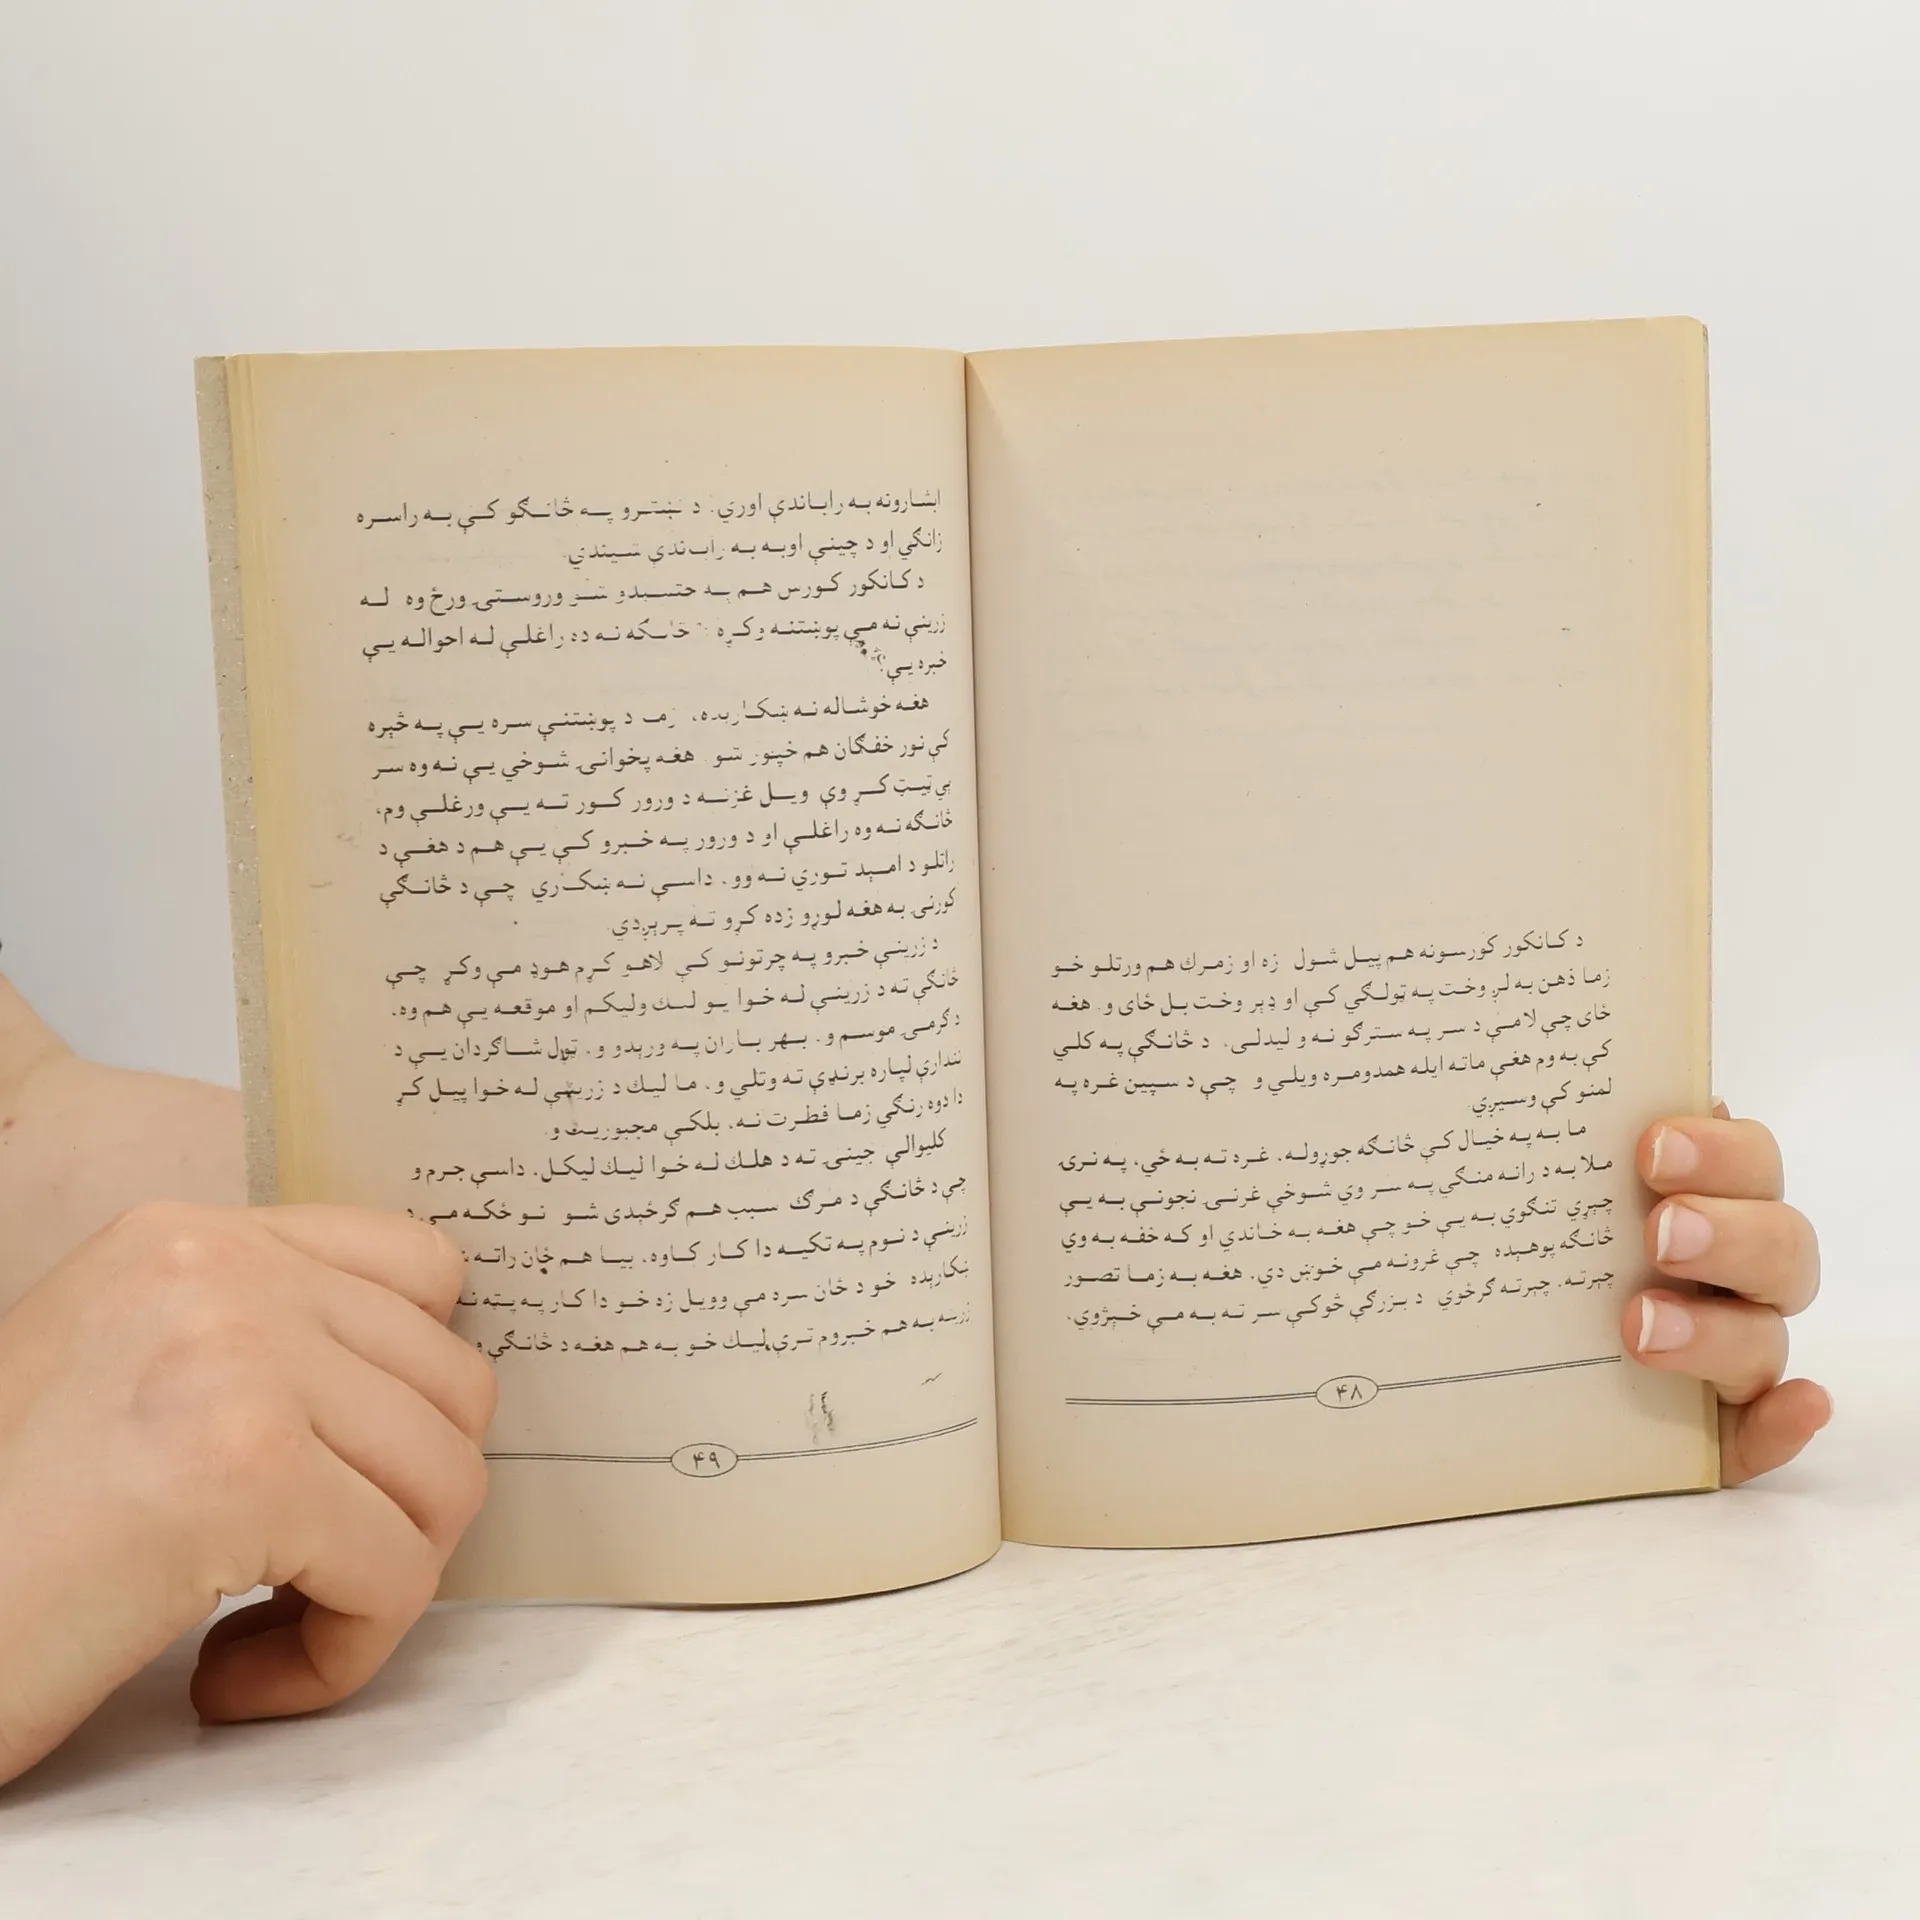 د کانکور کورسونه هم پیل شول زه او زمرك هم ورتلو خو
زما ذهن به لږ وخت په ټولګي کې او ډېر وخت بل ځای و. هغه
ځای چې لا مې د سر په سترګو نه و لیدلی. د څانګې په کلي
کې به وم هغې ماته ایله همدومره ویلي و چې د سپین غره په
لمنو کې وسیږي.
ما به په خیال کې څانګه جوړوله. غره ته به ځي، په نرۍ
ملا به د رانه منګي په سر وي شوخې غرنۍ نجونې به یې
چېړي تنګوي به یې خو چې هغه به خاندي او که خفه به وي
څانګه پوهېده چې غرونه مې خوښ دي. هغه به زما تصور
چېرته. چېرته ګرځوي د بزرګې څوکې سر ته به مې خېژوي.
۴۸
ابشارونه به راباندې اوري. د نښترو په څانګو کې به راسره
زانګي او د چینې اوبه به راباندې شیندي.
د کانکور کورس هم په ختمېدو شو وروستۍ ورځ وه له
زرینې نه مې پوښتنه وکړه څانګه نه ده راغلې له احواله یې
خبره یې؟
هغه خوشاله نه ښکارېده، زما د پوښتنې سره یې په څېره
کې نور خفګان هم خپور شو هغه پخوانۍ شوخي یې نه وه سر
یې ټیټ کړ وې ویل غزنه د ورور کور ته یې ورغلې وم،
څانګه نه وه راغلې او د ورور په خبرو کې یې هم د هغې د
راتلو د امېد توري نه وو. داسې نه ښکاري چې د څانګې
کورنۍ به هغه لوړو زده کړو ته پرېږدي.
د زرینې خبرو په چرتونو کې لاهو کړم هوډ مې وکړ چې
څانګې ته د زرینې له خوا یو لیك ولیکم او موقعه یې هم وه.
د ګرمۍ موسم و. بهر باران په ورېدو و. ټول شاګردان یې د
نندارې لپاره برنډې ته وتلي و. ما لیك د زرینې له خوا پیل کړ
دا دوه رنګي زما فطرت نه، بلکې مجبوریت و.
کلیوالې جینۍ ته د هلك له خوا لیك لیکل. داسې جرم و
چې د څانګې د مرګ سبب هم ګرځېدی شو نو ځکه مې د
زرینې د نوم په تکیه دا کار کاوه. بیا هم ځان راته
ښکارېده خو د ځان سره مې وویل زه خو دا کار په پټه نه
زرینه به هم خبروم ترې لیك خو به هم هغه د څانګې و
۴۹